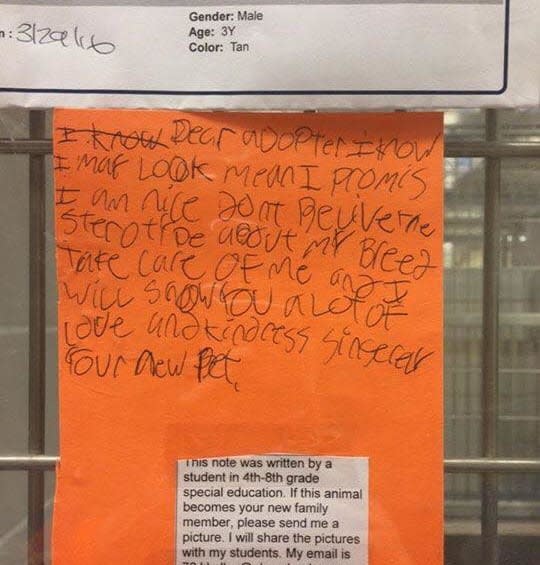 Gender: Male
n: 3/29/16
Age: 3Y
Color: Tan
I know Dear adopter i know
I may Look mean I promis
I am nice dont Beliverne
sterotype about my Breed
Take care OF me and I
will show you a Lot oF
Love and kindness sincerely
Your new Pet,
This note was written by a
student in 4th-8th grade
special education. If this animal
becomes your new family
member, please send me a
picture. I will share the pictures
with my students. My email is